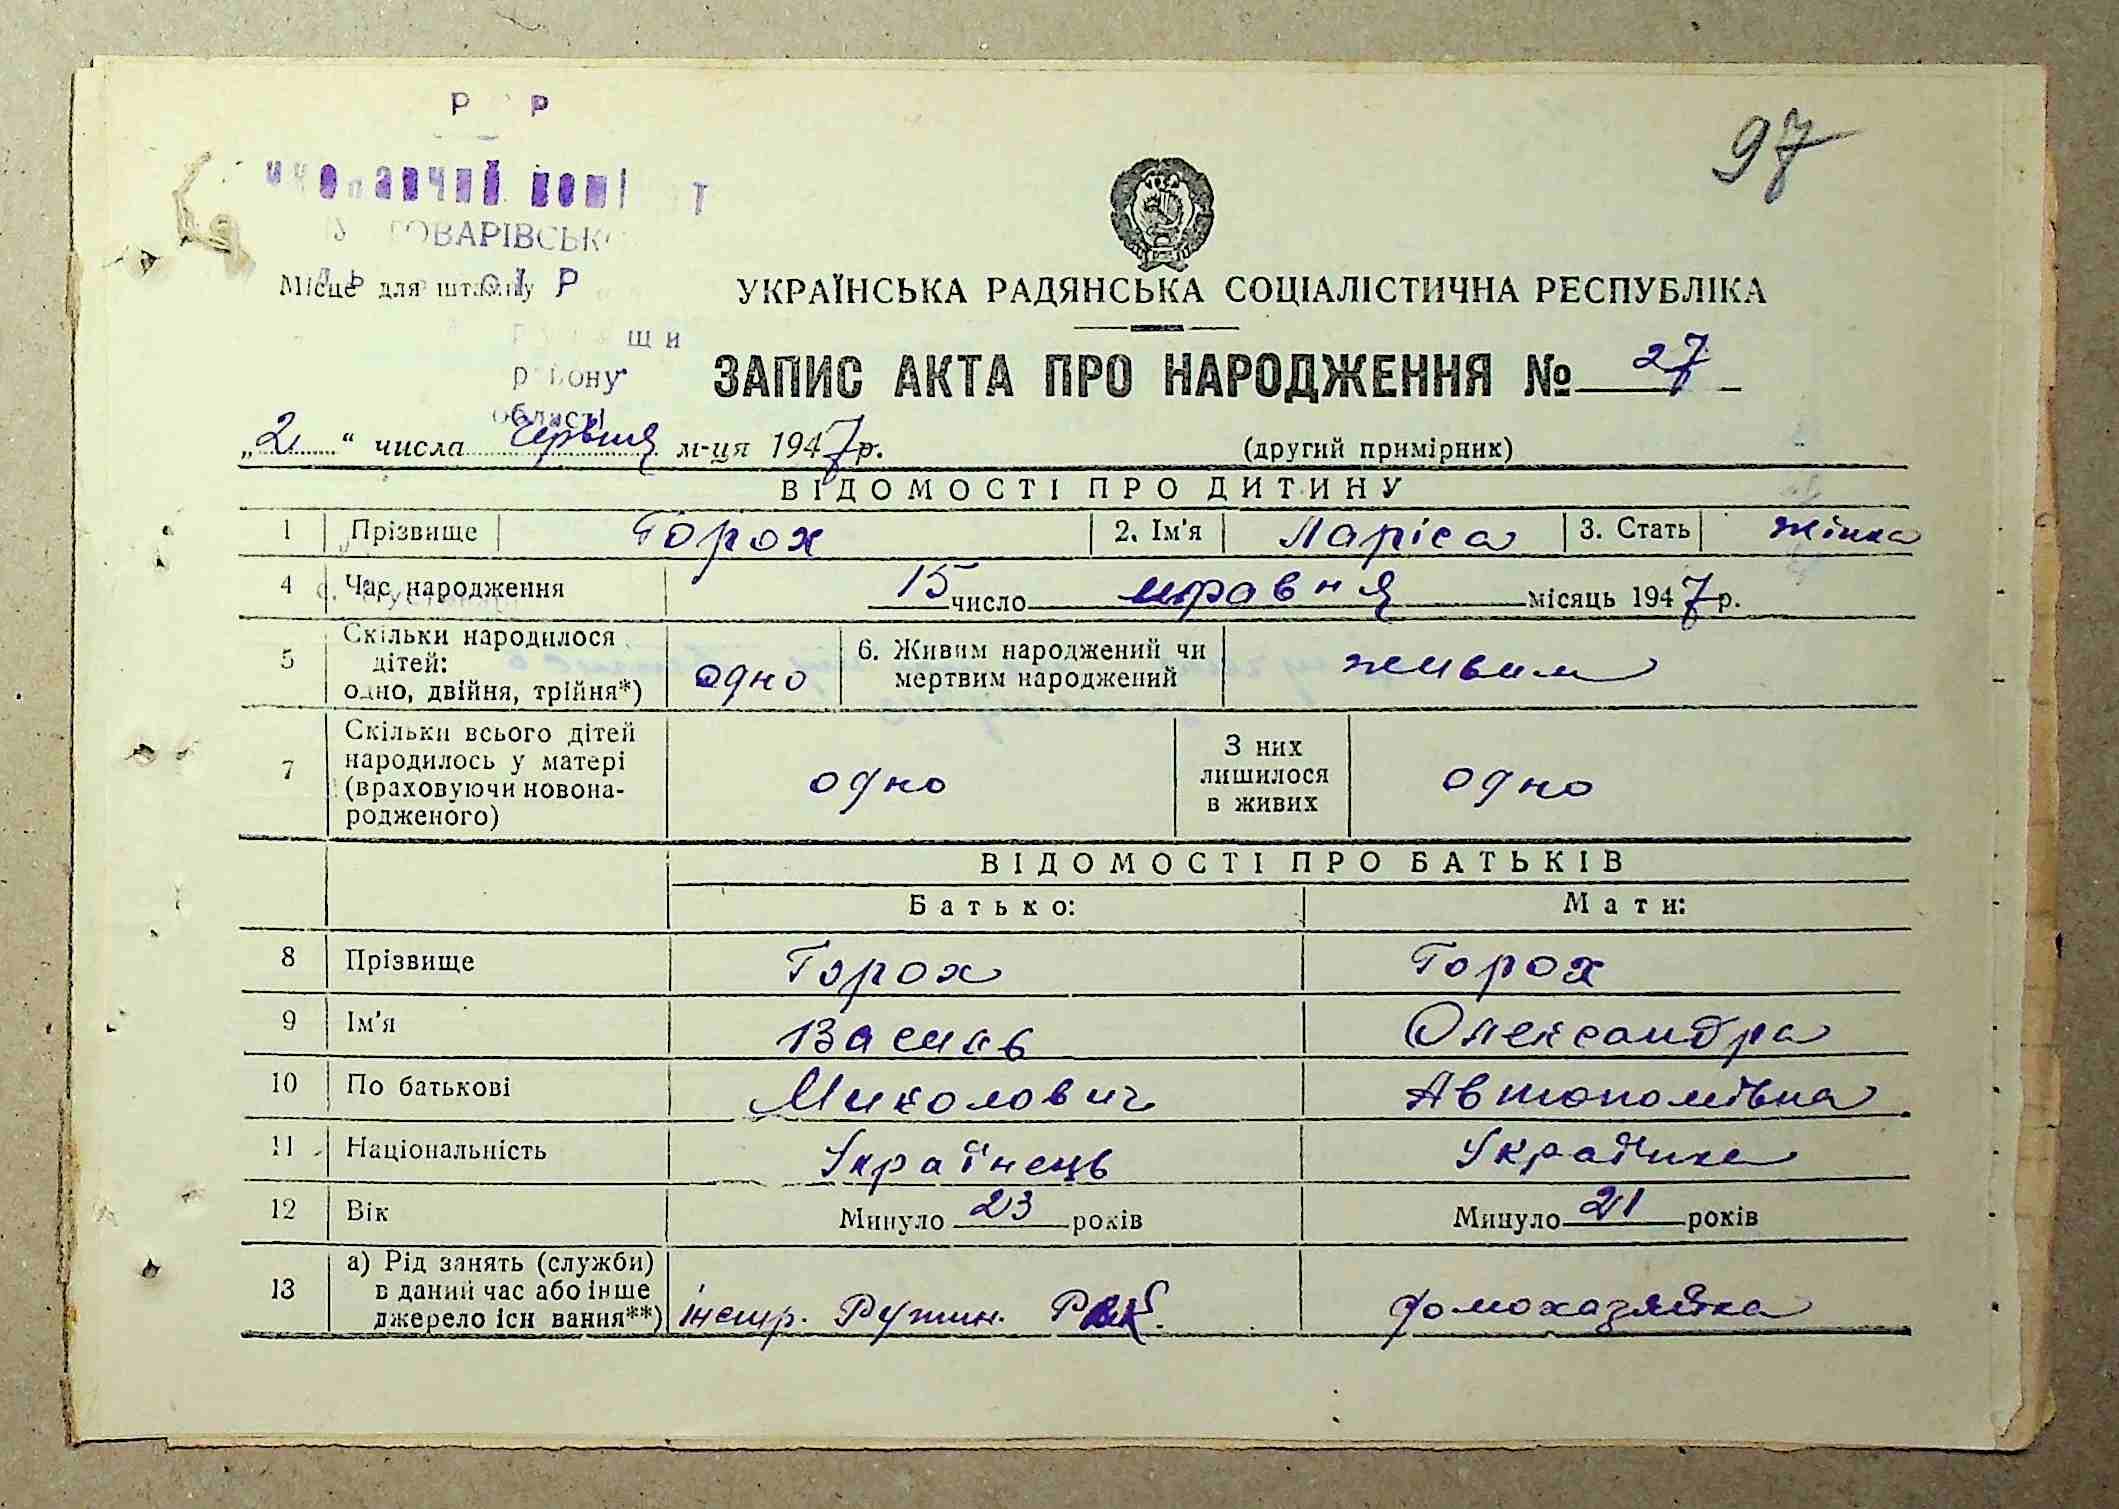 97
Місце для штампу
району
області
УКРАЇНСЬКА РАДЯНСЬКА СОЦІАЛІСТИЧНА РЕСПУБЛІКА
ЗАПИС АКТА ПРО НАРОДЖЕННЯ № 27
„2“ числа червня м-ця 1947 р. (другий примірник)
ВІДОМОСТІ ПРО ДИТИНУ
1 Прізвище Горох 2. Ім'я Ларіса 3. Стать жінка
4 Час народження 15 число травня місяць 1947 р.
5 Скільки народилося дітей: одно, двійня, трійня*) одно 6. Живим народжений чи мертвим народжений живим
7 Скільки всього дітей народилось у матері (враховуючи новонародженого) одно З них лишилося в живих одно
ВІДОМОСТІ ПРО БАТЬКІВ
Батько: Мати:
8 Прізвище Горох Горох
9 Ім'я Василь Олександра
10 По батькові Миколович Автономівна
11 Національність Українець Українка
12 Вік Минуло 23 років Минуло 21 років
13 а) Рід занять (служби) в даний час або інше джерело існ вання**) інстр. Ружин. домохазяйка